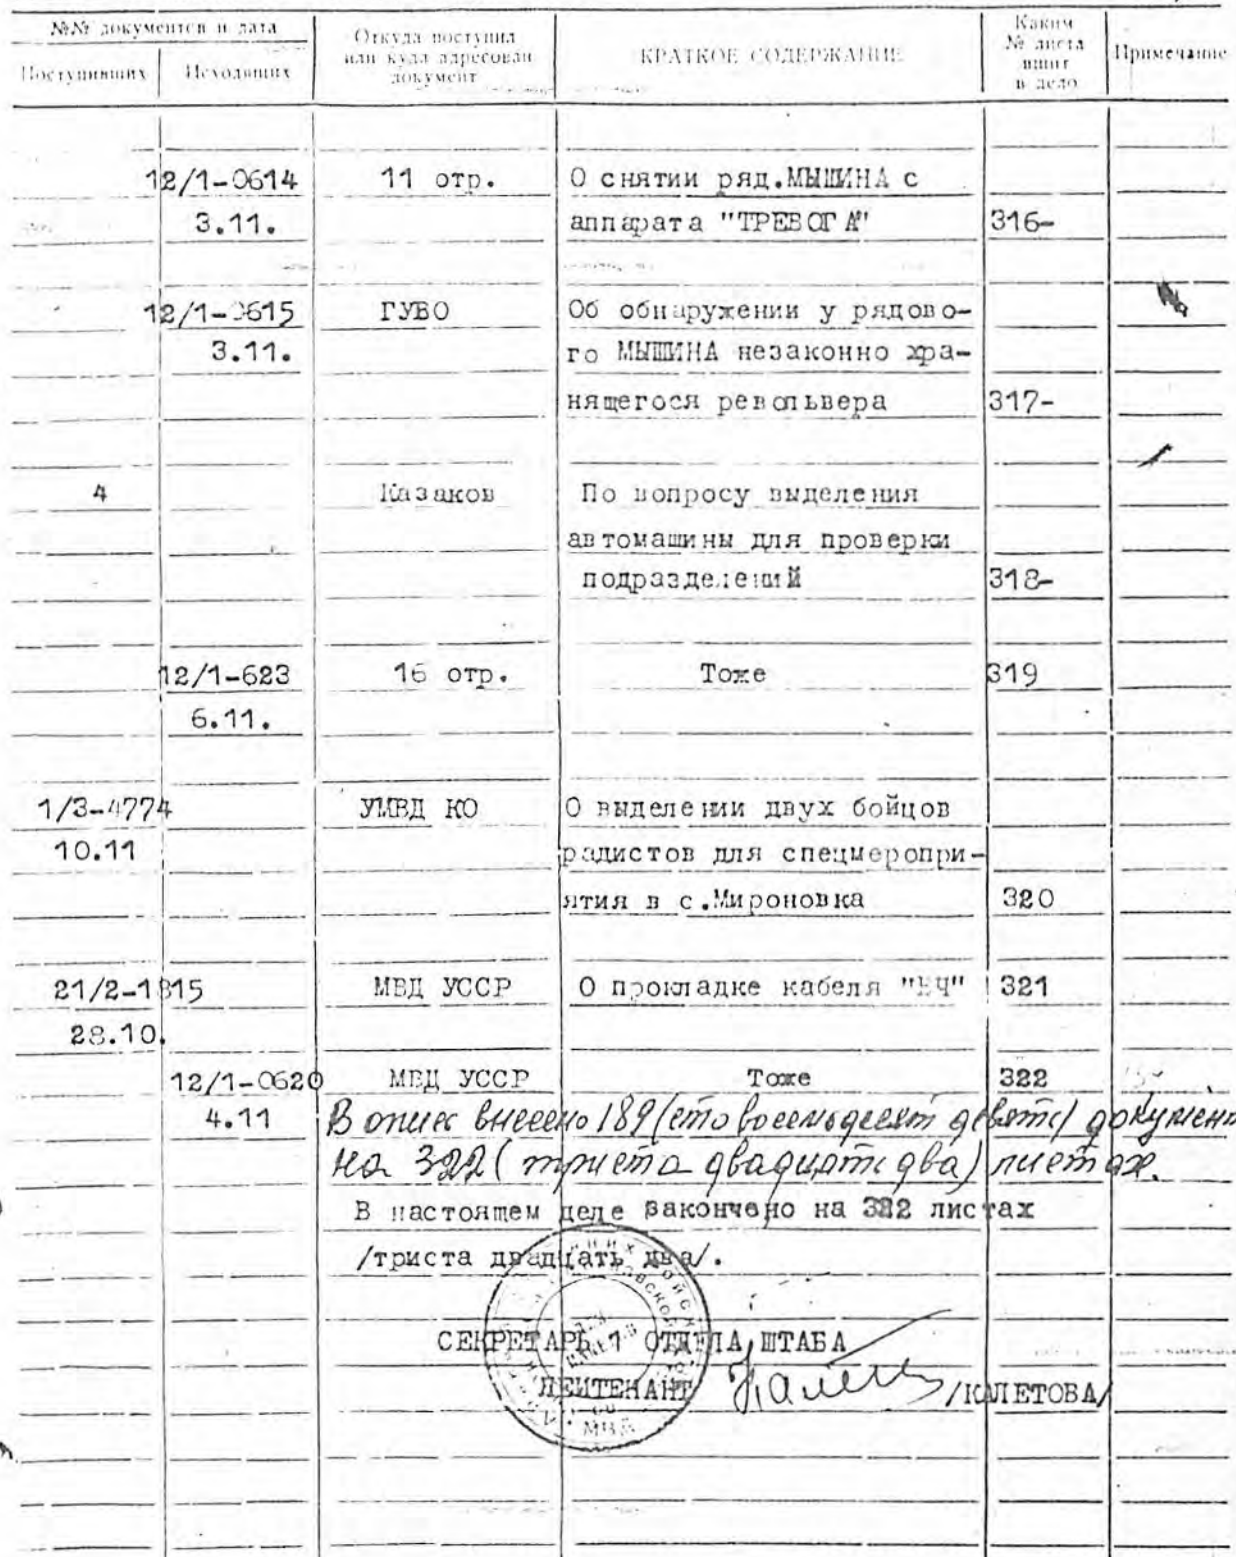 №№ документов и дата
Поступивших Исходящих
Откуда поступил
или куда адресован
документ
КРАТКОЕ СОДЕРЖАНИЕ
Каким
№ листа
вшит
в дело
Примечание
12/1-0614 11 отр. О снятии ряд.МЫШИНА с
3.11. аппарата "ТРЕВОГА" 316-
12/1-0615 ГУВО Об обнаружении у рядово-
3.11. го МЫШИНА незаконно хра-
нящегося револьвера 317-
4 Казаков По вопросу выделения
автомашины для проверки
подразделений 318-
12/1-623 16 отр. Тоже 319
6.11.
1/3-4774 УМВД КО О выделении двух бойцов
10.11 радистов для спецмероприя-
ятия в с.Мироновка 320
21/2-1815 МВД УССР О прокладке кабеля "ВЧ" 321
28.10.
12/1-0620 МВД УССР Тоже 322
4.11 В опись внесено 189 (сто восемьдесят девять) документ
на 322 (триста двадцать два) листах.
В настоящем деле закончено на 322 листах
/триста двадцать два/.
СЕКРЕТАРЬ 1 ОТДЕЛА ШТАБА
ЛЕЙТЕНАНТ /КАЛЕТОВА/
МВД